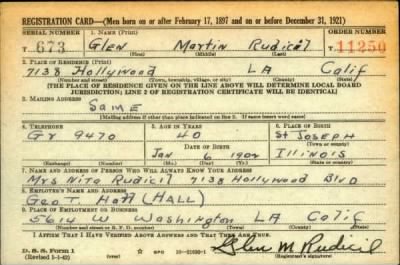 REGISTRATION CARD—(Men born on or after February 17, 1897 and on or before December 31, 1921)
SERIAL NUMBER 1. NAME (Print) ORDER NUMBER
T 673 Glen Martin Rudicil T 11250
(First) (Middle) (Last)
2. PLACE OF RESIDENCE (Print)
7138 Hollywood LA Calif
(Number and street) (Town, township, village, or city) (County) (State)
[THE PLACE OF RESIDENCE GIVEN ON THE LINE ABOVE WILL DETERMINE LOCAL BOARD
JURISDICTION; LINE 2 OF REGISTRATION CERTIFICATE WILL BE IDENTICAL]
3. MAILING ADDRESS
Same
[Mailing address if other than place indicated on line 2. If same insert word same]
4. TELEPHONE 5. AGE IN YEARS 6. PLACE OF BIRTH
Gr 9470 40 St JOSEPH
DATE OF BIRTH (Town or county)
Jan 6 1902 Illinois
(Exchange) (Number) (Mo.) (Day) (Yr.) (State or country)
7. NAME AND ADDRESS OF PERSON WHO WILL ALWAYS KNOW YOUR ADDRESS
Mrs Rudicil 7138 Hollywood Blvd
8. EMPLOYER'S NAME AND ADDRESS
Geo T. Hall (HALL)
9. PLACE OF EMPLOYMENT OR BUSINESS
5614 W Washington LA Calif
(Number and street or R. F. D. number) (Town) (County) (State)
I AFFIRM THAT I HAVE VERIFIED ABOVE ANSWERS AND THAT THEY ARE TRUE.
D. S. S. Form 1
(Revised 1-1-42) Glen M Rudicil
(Registrant's signature)